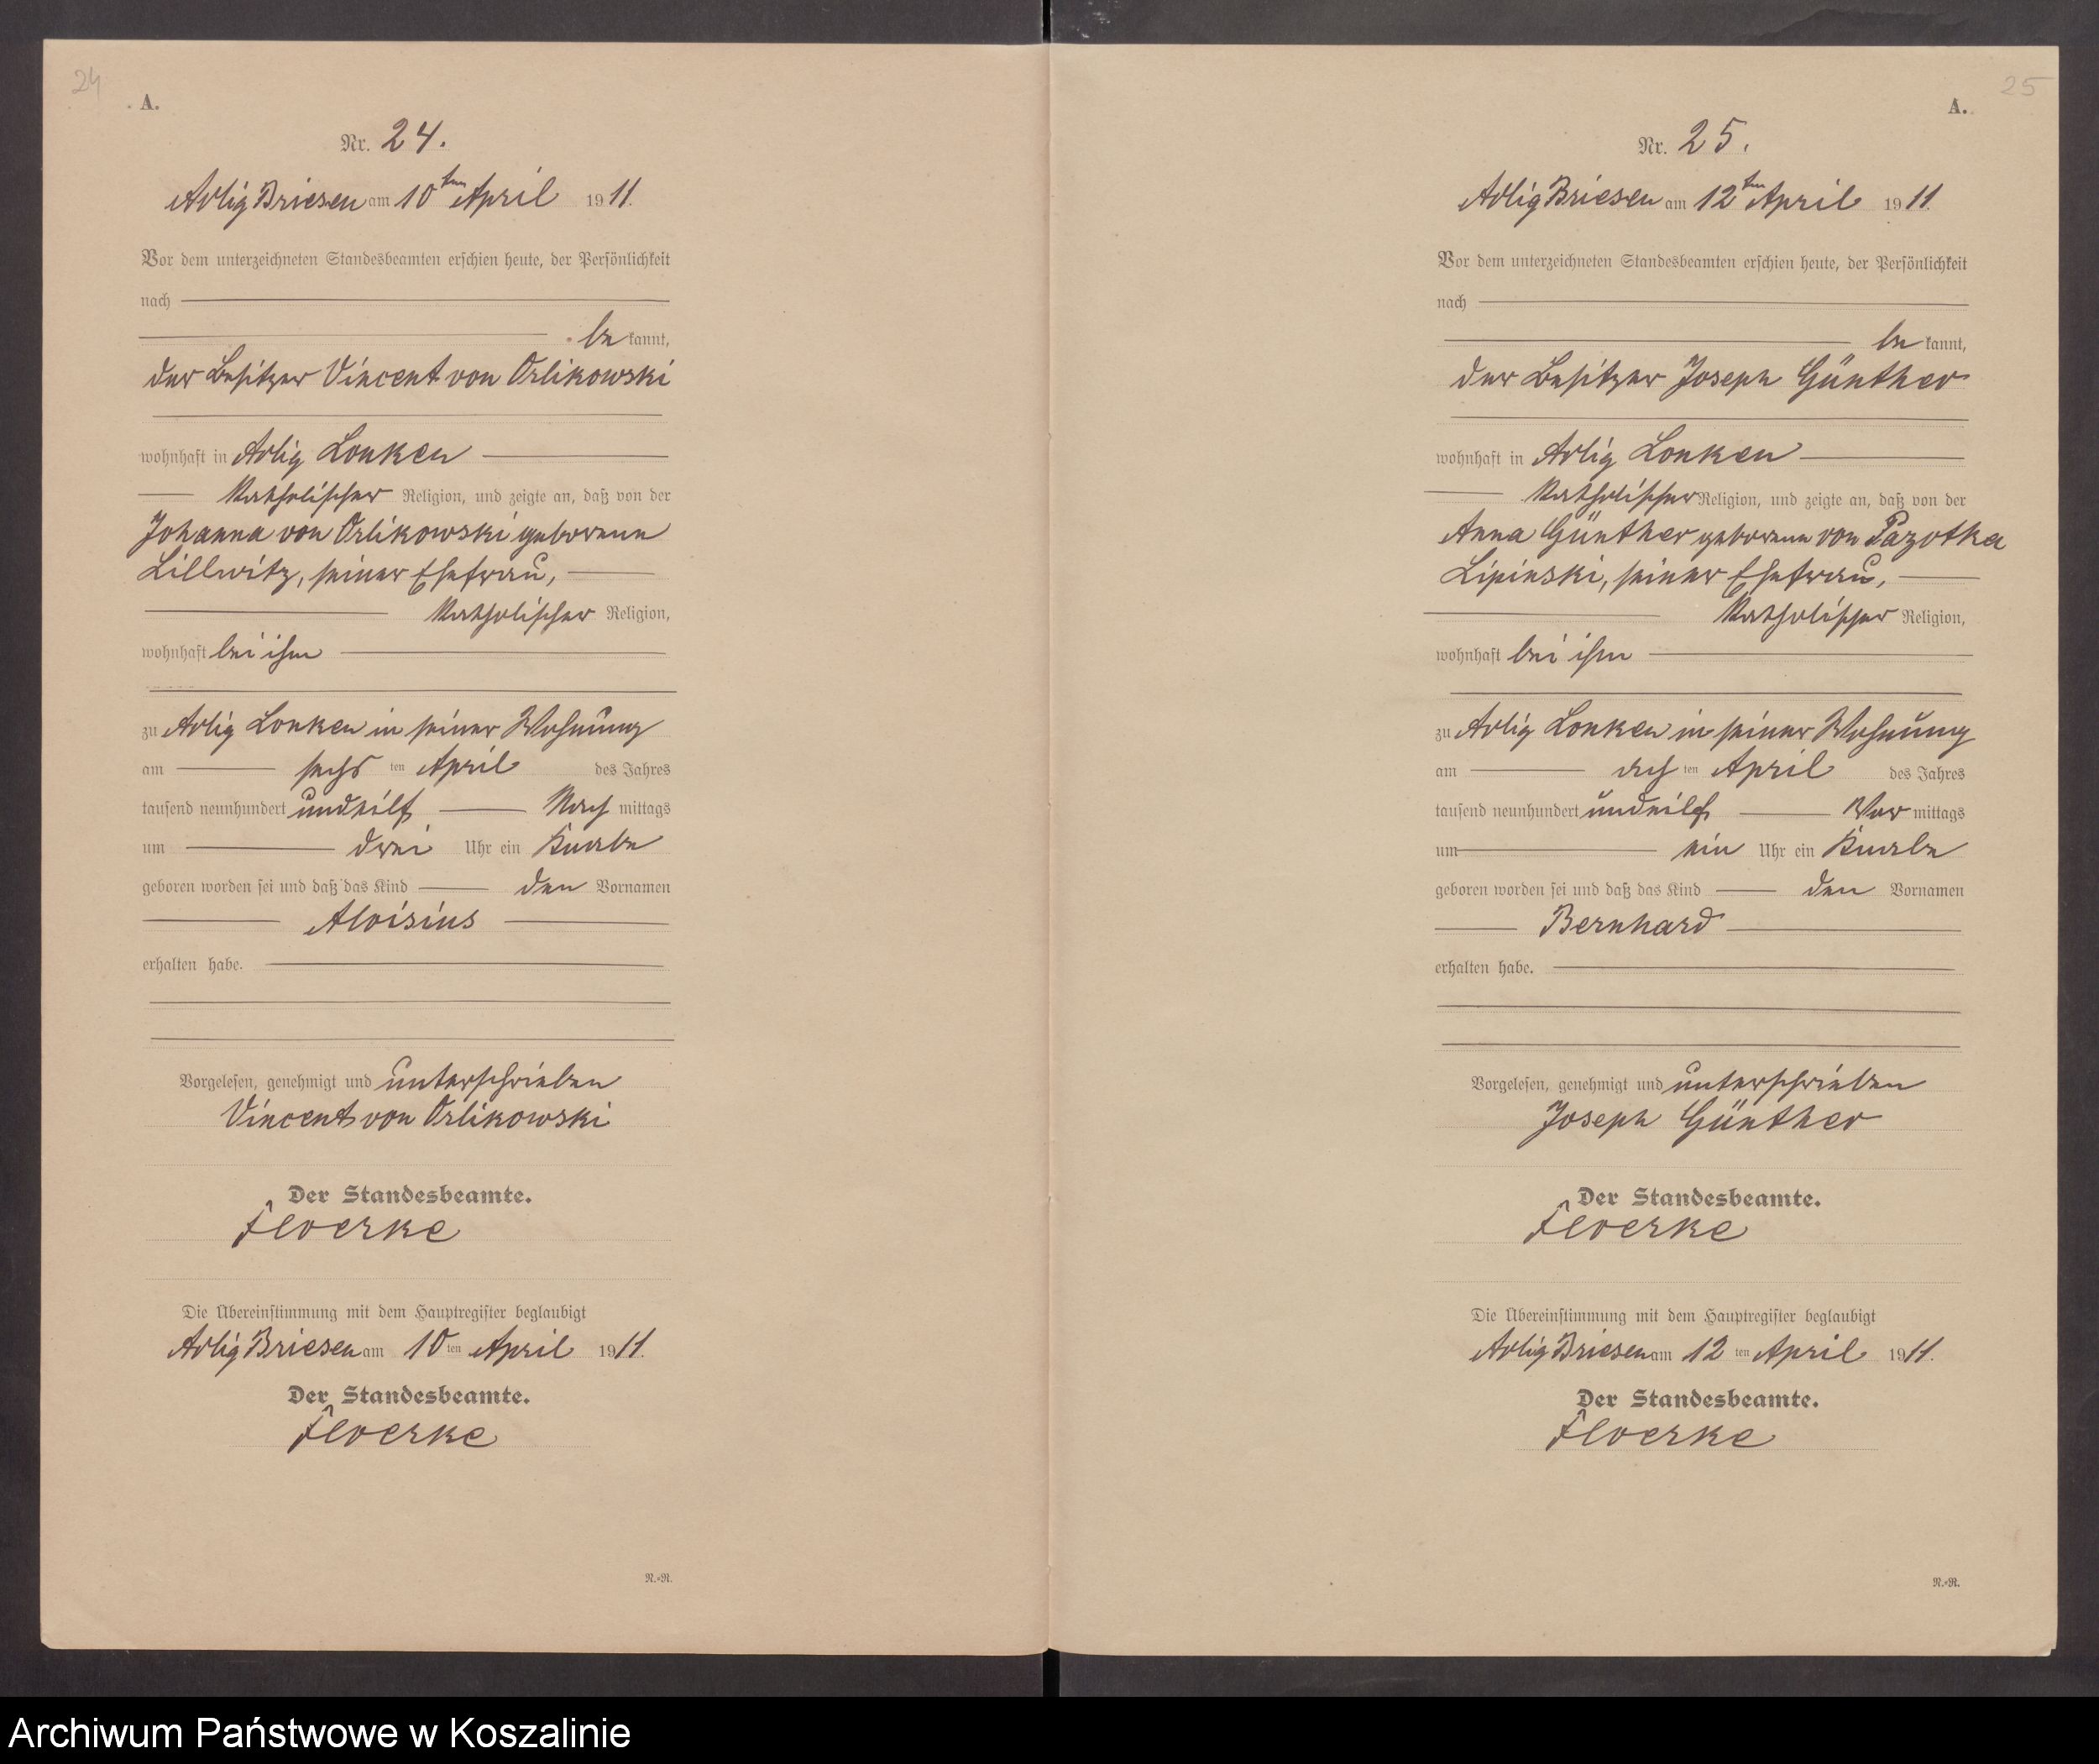 24
A.
Nr. 24.
Adlig Briesen am 10ten April 1911.
Vor dem unterzeichneten Standesbeamten erschien heute, der Persönlichkeit
nach
be kannt,
der Besitzer Vincent von Orlikowski
wohnhaft in Adlig Lonken
katholischer Religion, und zeigte an, daß von der
Johanna von Orlikowski geborene
Lillwitz, seiner Ehefrau,
katholischer Religion,
wohnhaft bei ihm
zu Adlig Lonken in seiner Wohnung
am sechs ten April des Jahres
tausend neunhundert undeilf Nach mittags
um drei Uhr ein Knabe
geboren worden sei und daß das Kind den Vornamen
Aloisius
erhalten habe.
Vorgelesen, genehmigt und unterschrieben
Vincent von Orlikowski
Der Standesbeamte.
Floerke
Die Übereinstimmung mit dem Hauptregister beglaubigt
Adlig Briesen am 10 ten April 1911.
Der Standesbeamte.
Floerke
R.-R.
25
A.
Nr. 25.
Adlig Briesen am 12ten April 1911.
Vor dem unterzeichneten Standesbeamten erschien heute, der Persönlichkeit
nach
be kannt,
der Besitzer Joseph Günther
wohnhaft in Adlig Lonken
katholischer Religion, und zeigte an, daß von der
Anna Günther geborene von Pazotka
Lipinski, seiner Ehefrau,
katholischer Religion,
wohnhaft bei ihm
zu Adlig Lonken in seiner Wohnung
am ach ten April des Jahres
tausend neunhundert undeilf Vor mittags
um ein Uhr ein Knabe
geboren worden sei und daß das Kind den Vornamen
Bernhard
erhalten habe.
Vorgelesen, genehmigt und unterschrieben
Joseph Günther
Der Standesbeamte.
Floerke
Die Übereinstimmung mit dem Hauptregister beglaubigt
Adlig Briesen am 12 ten April 1911.
Der Standesbeamte.
Floerke
R.-R.
Archiwum Państwowe w Koszalinie